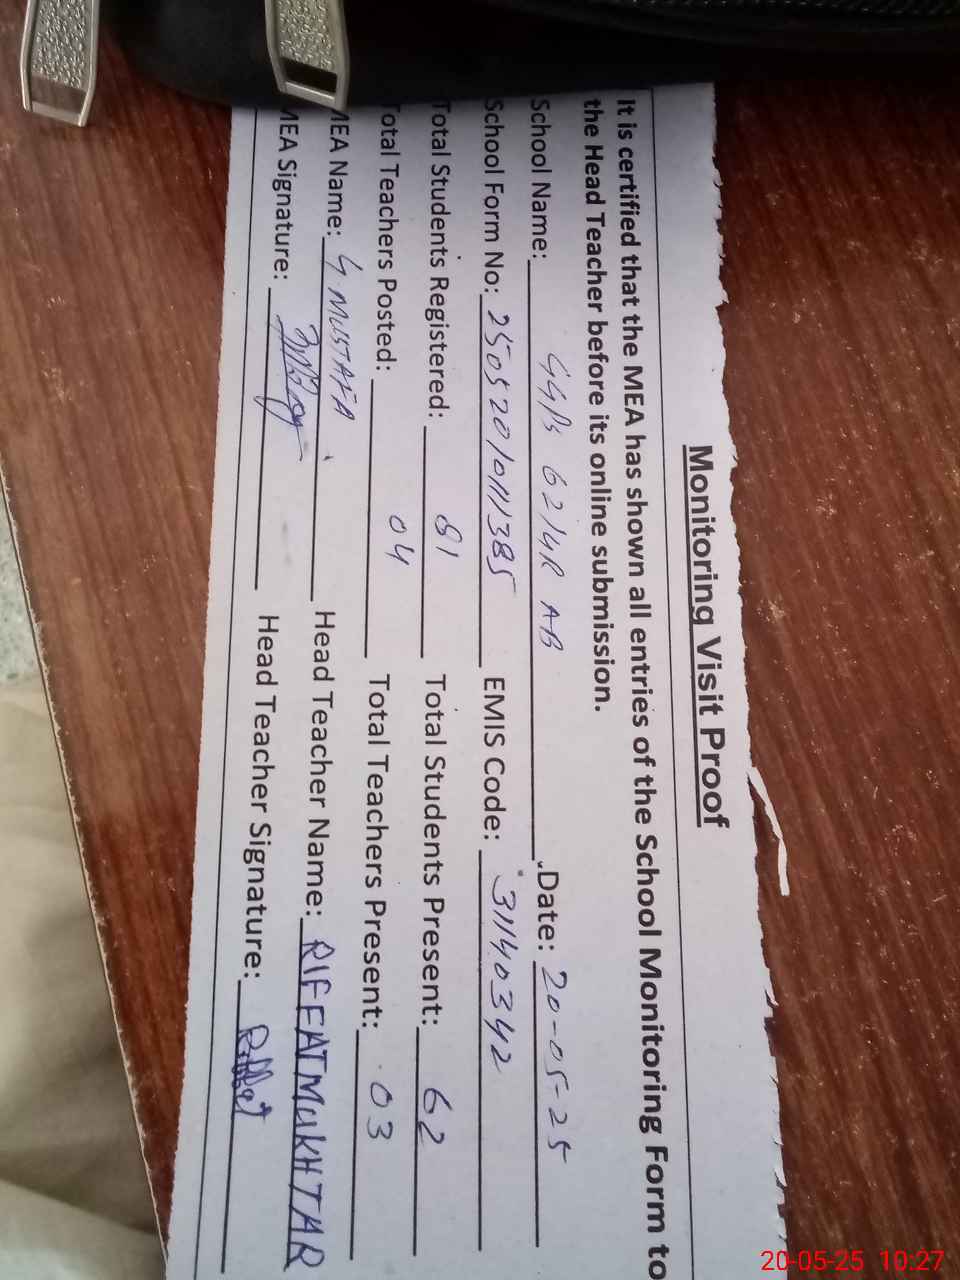 Monitoring Visit Proof
It is certified that the MEA has shown all entries of the School Monitoring Form to
the Head Teacher before its online submission.
School Name: GGPS 62/4R AB Date: 20-05-25
School Form No: 2505201011385 EMIS Code: 31140342
Total Students Registered: 81 Total Students Present: 62
Total Teachers Posted: 04 Total Teachers Present: 03
MEA Name: G. MUSTAFA Head Teacher Name: RIFFAT MUKHTAR
MEA Signature: Head Teacher Signature: Riffat
20-05-25 10:27